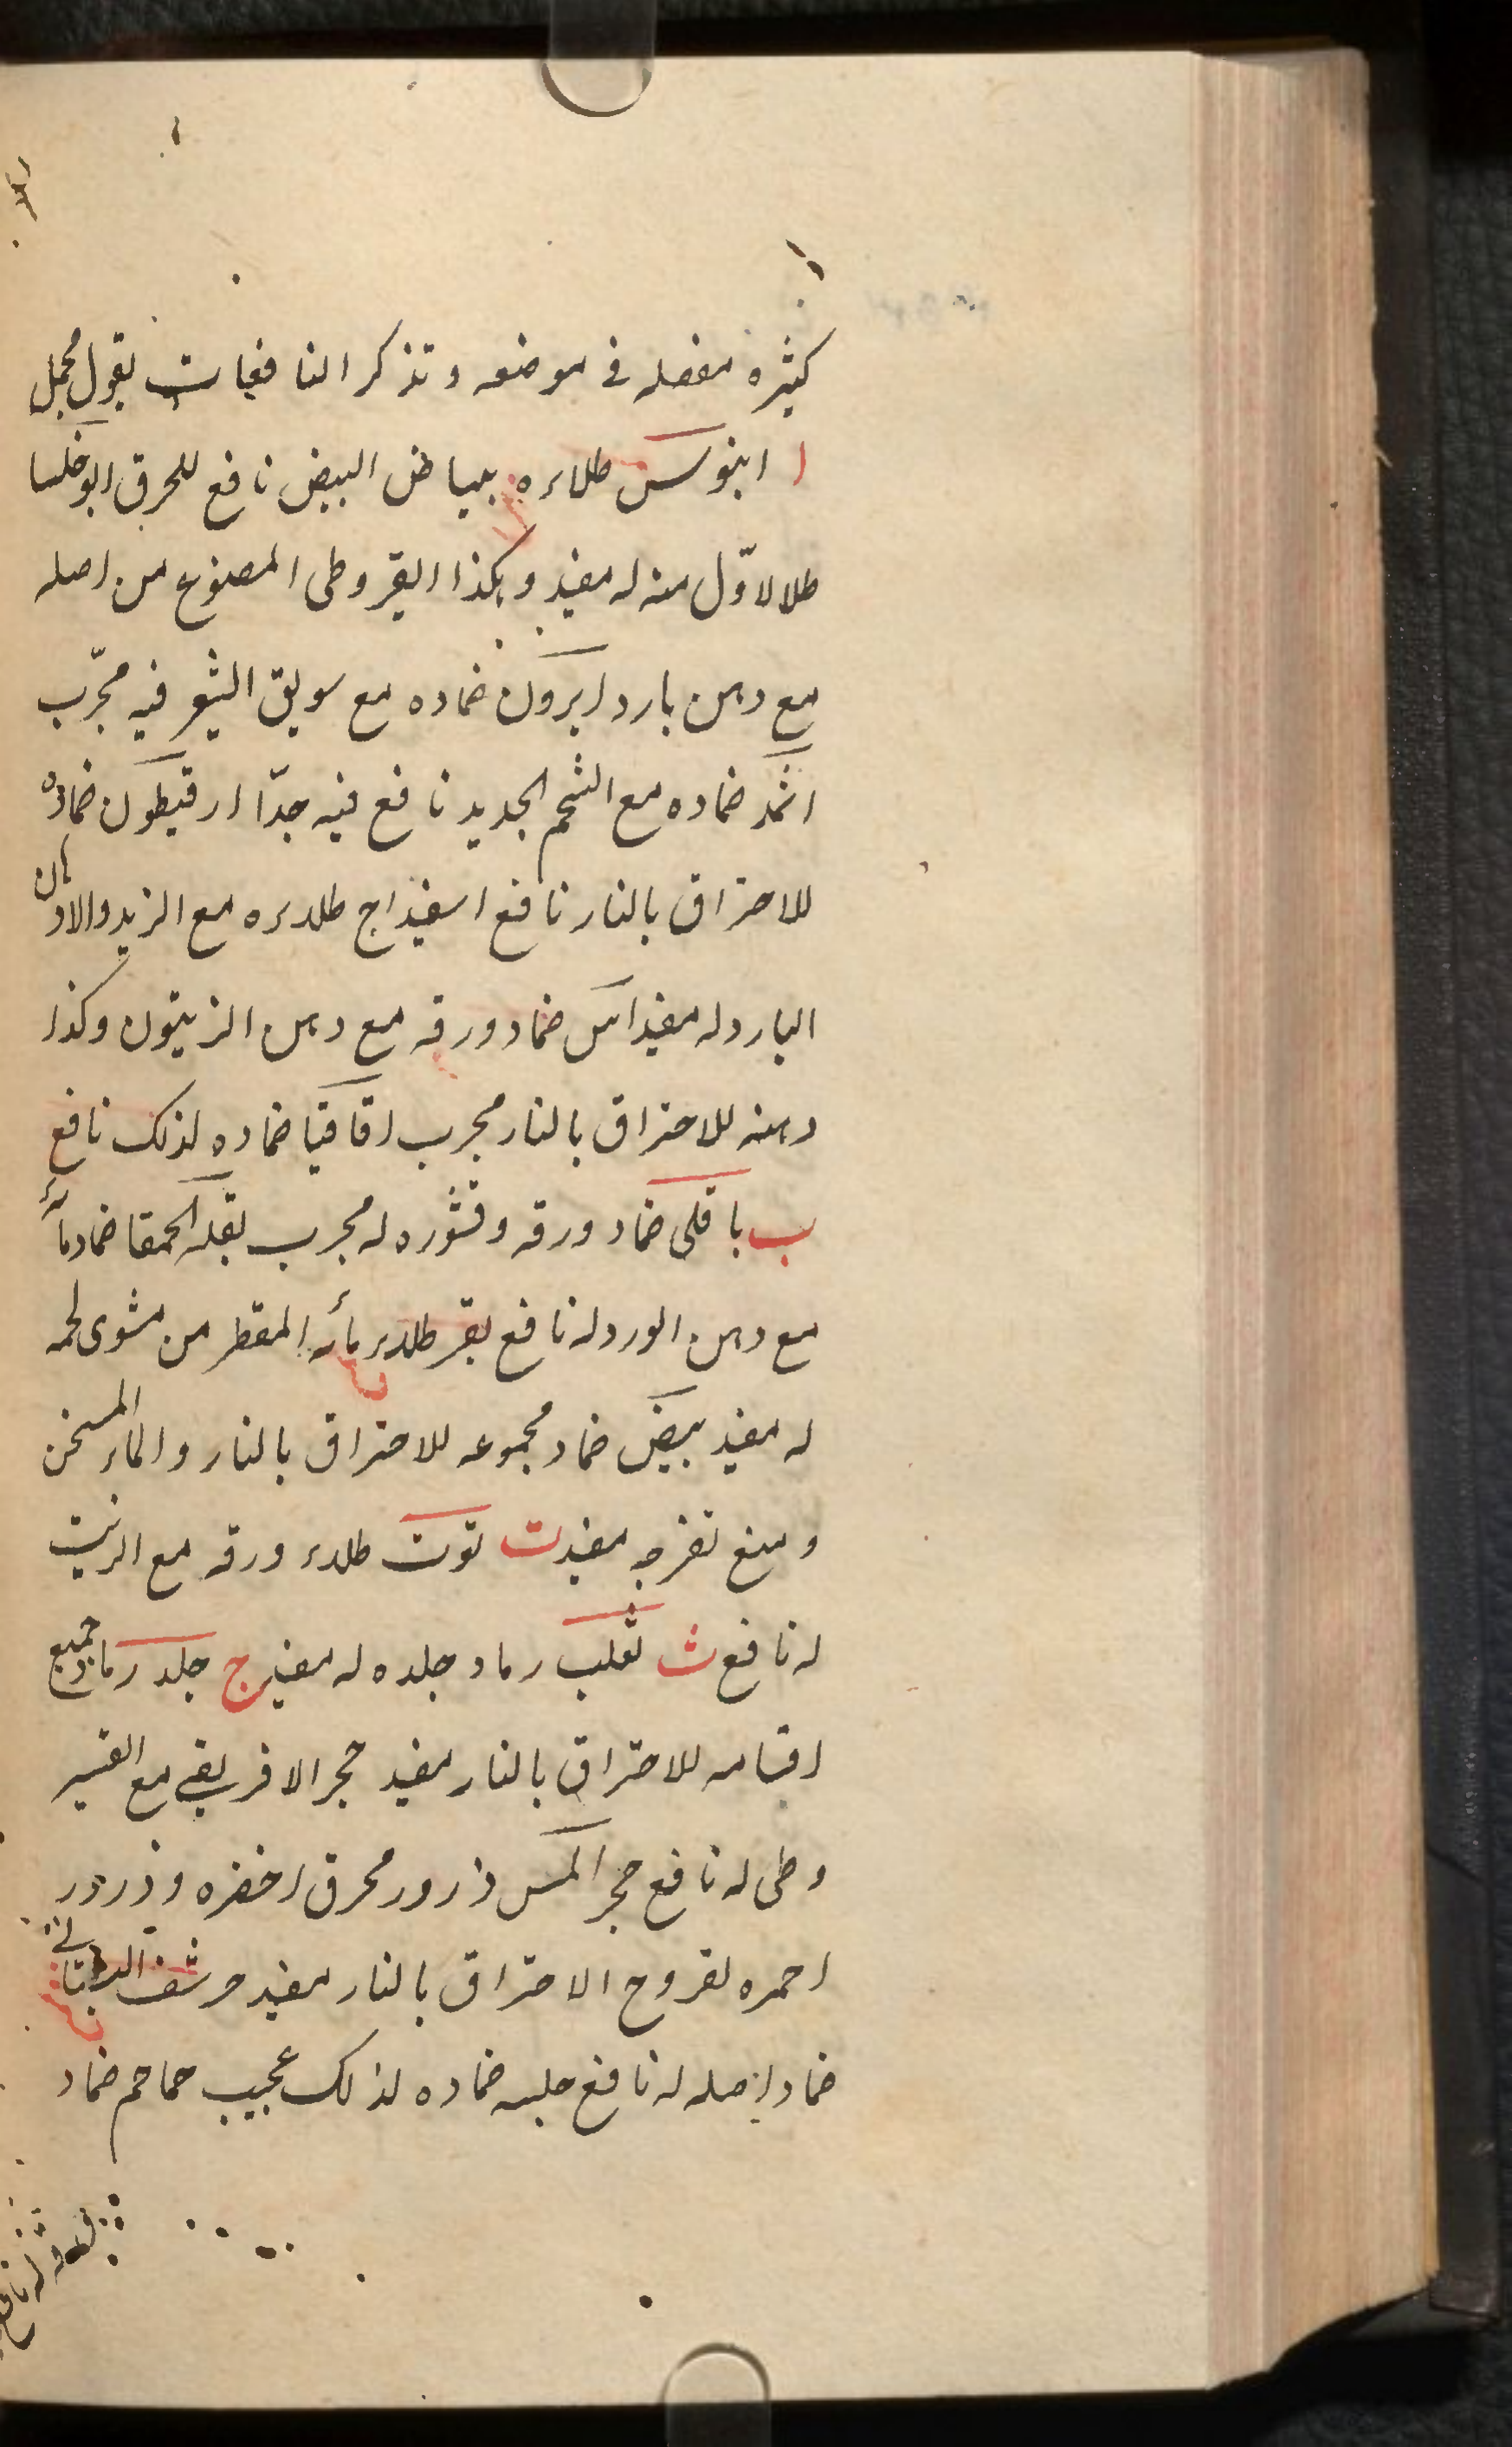 كثيره مفصله في موضعه و تذكر النافعات بقول مجمل
ا ابنوس طلاءه ببياض البيض نافع للحرق ابوخلسا
طلا لاوّل منه له مفيد و هكذا القيروطى المصنوع من اصله
مع دهن بارد ايرون ضماده مع سويق الشعر فيه مجرّب
اثمد ضماده مع الشحم الجديد نافع فيه جدّا ارقيطون ضماده
للاحتراق بالنار نافع اسفيداج طلاءه مع الزيد والادهان
البارد له مفيد اس ضماد ورقه مع دهن الزيتون وكذا
دهنه للاحتراق بالنار مجرب اقاقيا ضماده لذلك نافع
ب باقلى ضماد ورقه وقشوره له مجرب بقلة الحمقا ضماد مائه
مع دهن الورد له نافع بقر طلاء مائه المقطر من مشوى لحمه
له مفيد بيض ضماد مجموعه للاحتراق بالنار والماء المسخن
و منع تقرحه مفيد ت توت طلاء ورقه مع الزيت
له نافع ث ثعلب رماد جلده له مفيد ج جلد رماد جميع
اقسامه للاحتراق بالنار مفيد حجر الافريقى مع القير
وطى له نافع حجر المس ذرور محرق اخضره وذرور
احمره لقروح الاحتراق بالنار مفيد حرشف البستانى
ضماد اصله له نافع حلبه ضماده لذلك عجيب حماحم ضماد